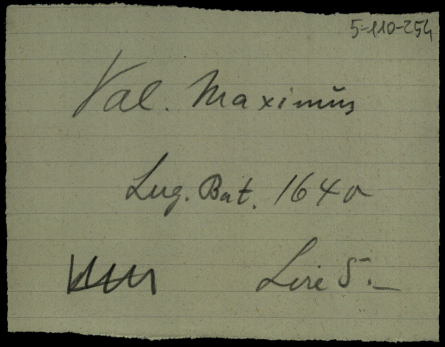 5-110-254
Val. Maximus
Lug. Bat. 1640
Lire 5.—